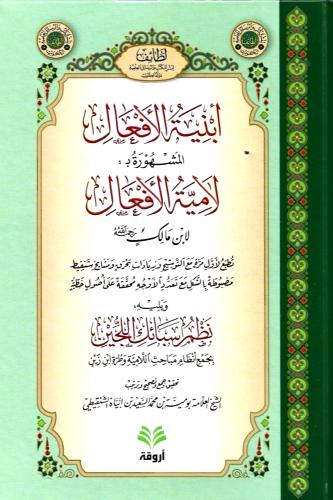 لطائف
أبنية الأفعال
المشهورة بـ :
لامية الأفعال
لابن مالك رحمه الله
تطبع لأول مرة مع التوشيح وزيادات بحرق ومنابع شنقيط
مضبوطة بالشكل مع تعدد الأوجه محققة على أصول خطية
ويليه
نظم سبائك اللجين
بجمع أنظام مباحث اللامية وطرة ابن زين
تحقيق جمع وتصحيح وترتيب
الشيخ العلامة بن محمد السعيد بن اباه الشنقيطي
أروقة